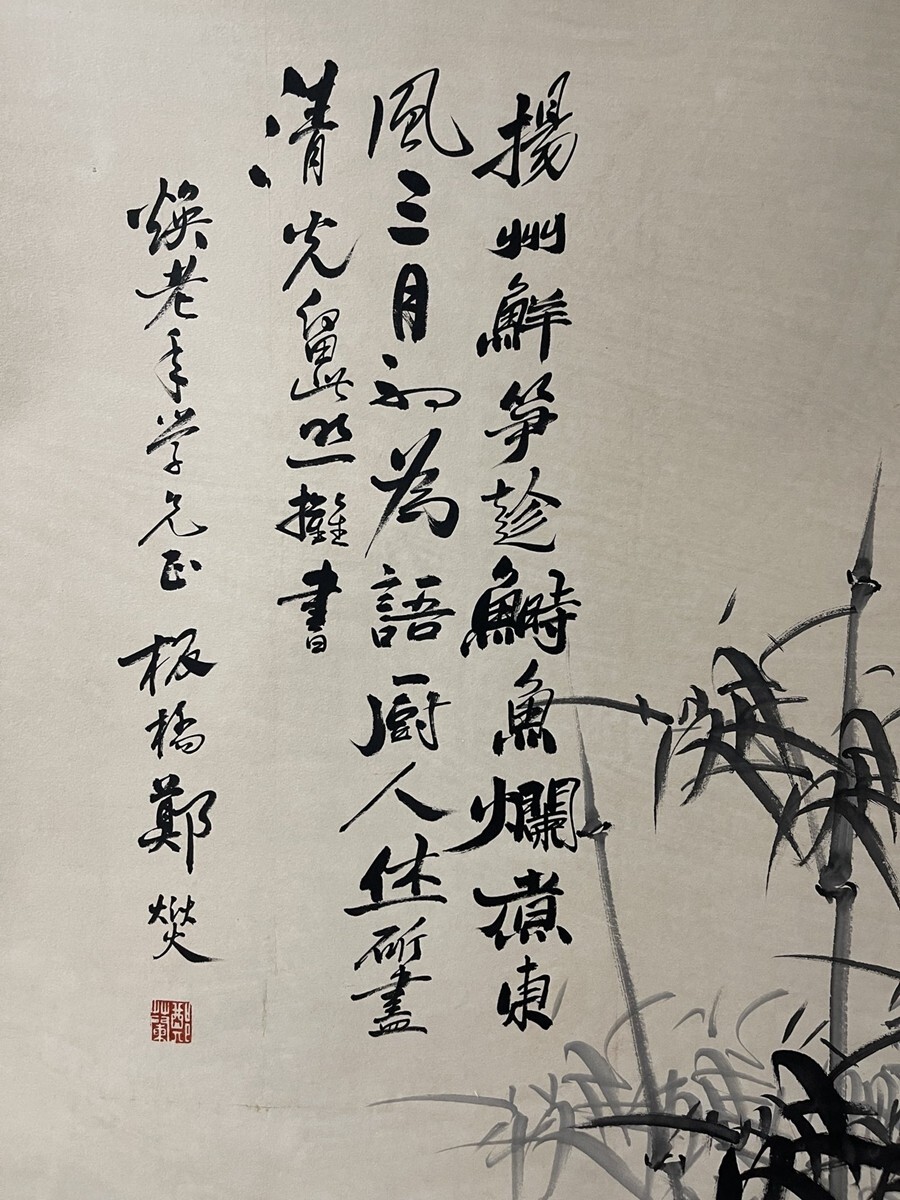 揚州鮮筍趁鰣魚爛煮東
風三月初為語厨人休斫盡
清光留此照攤書
煥老年学兄正 板橋鄭燮